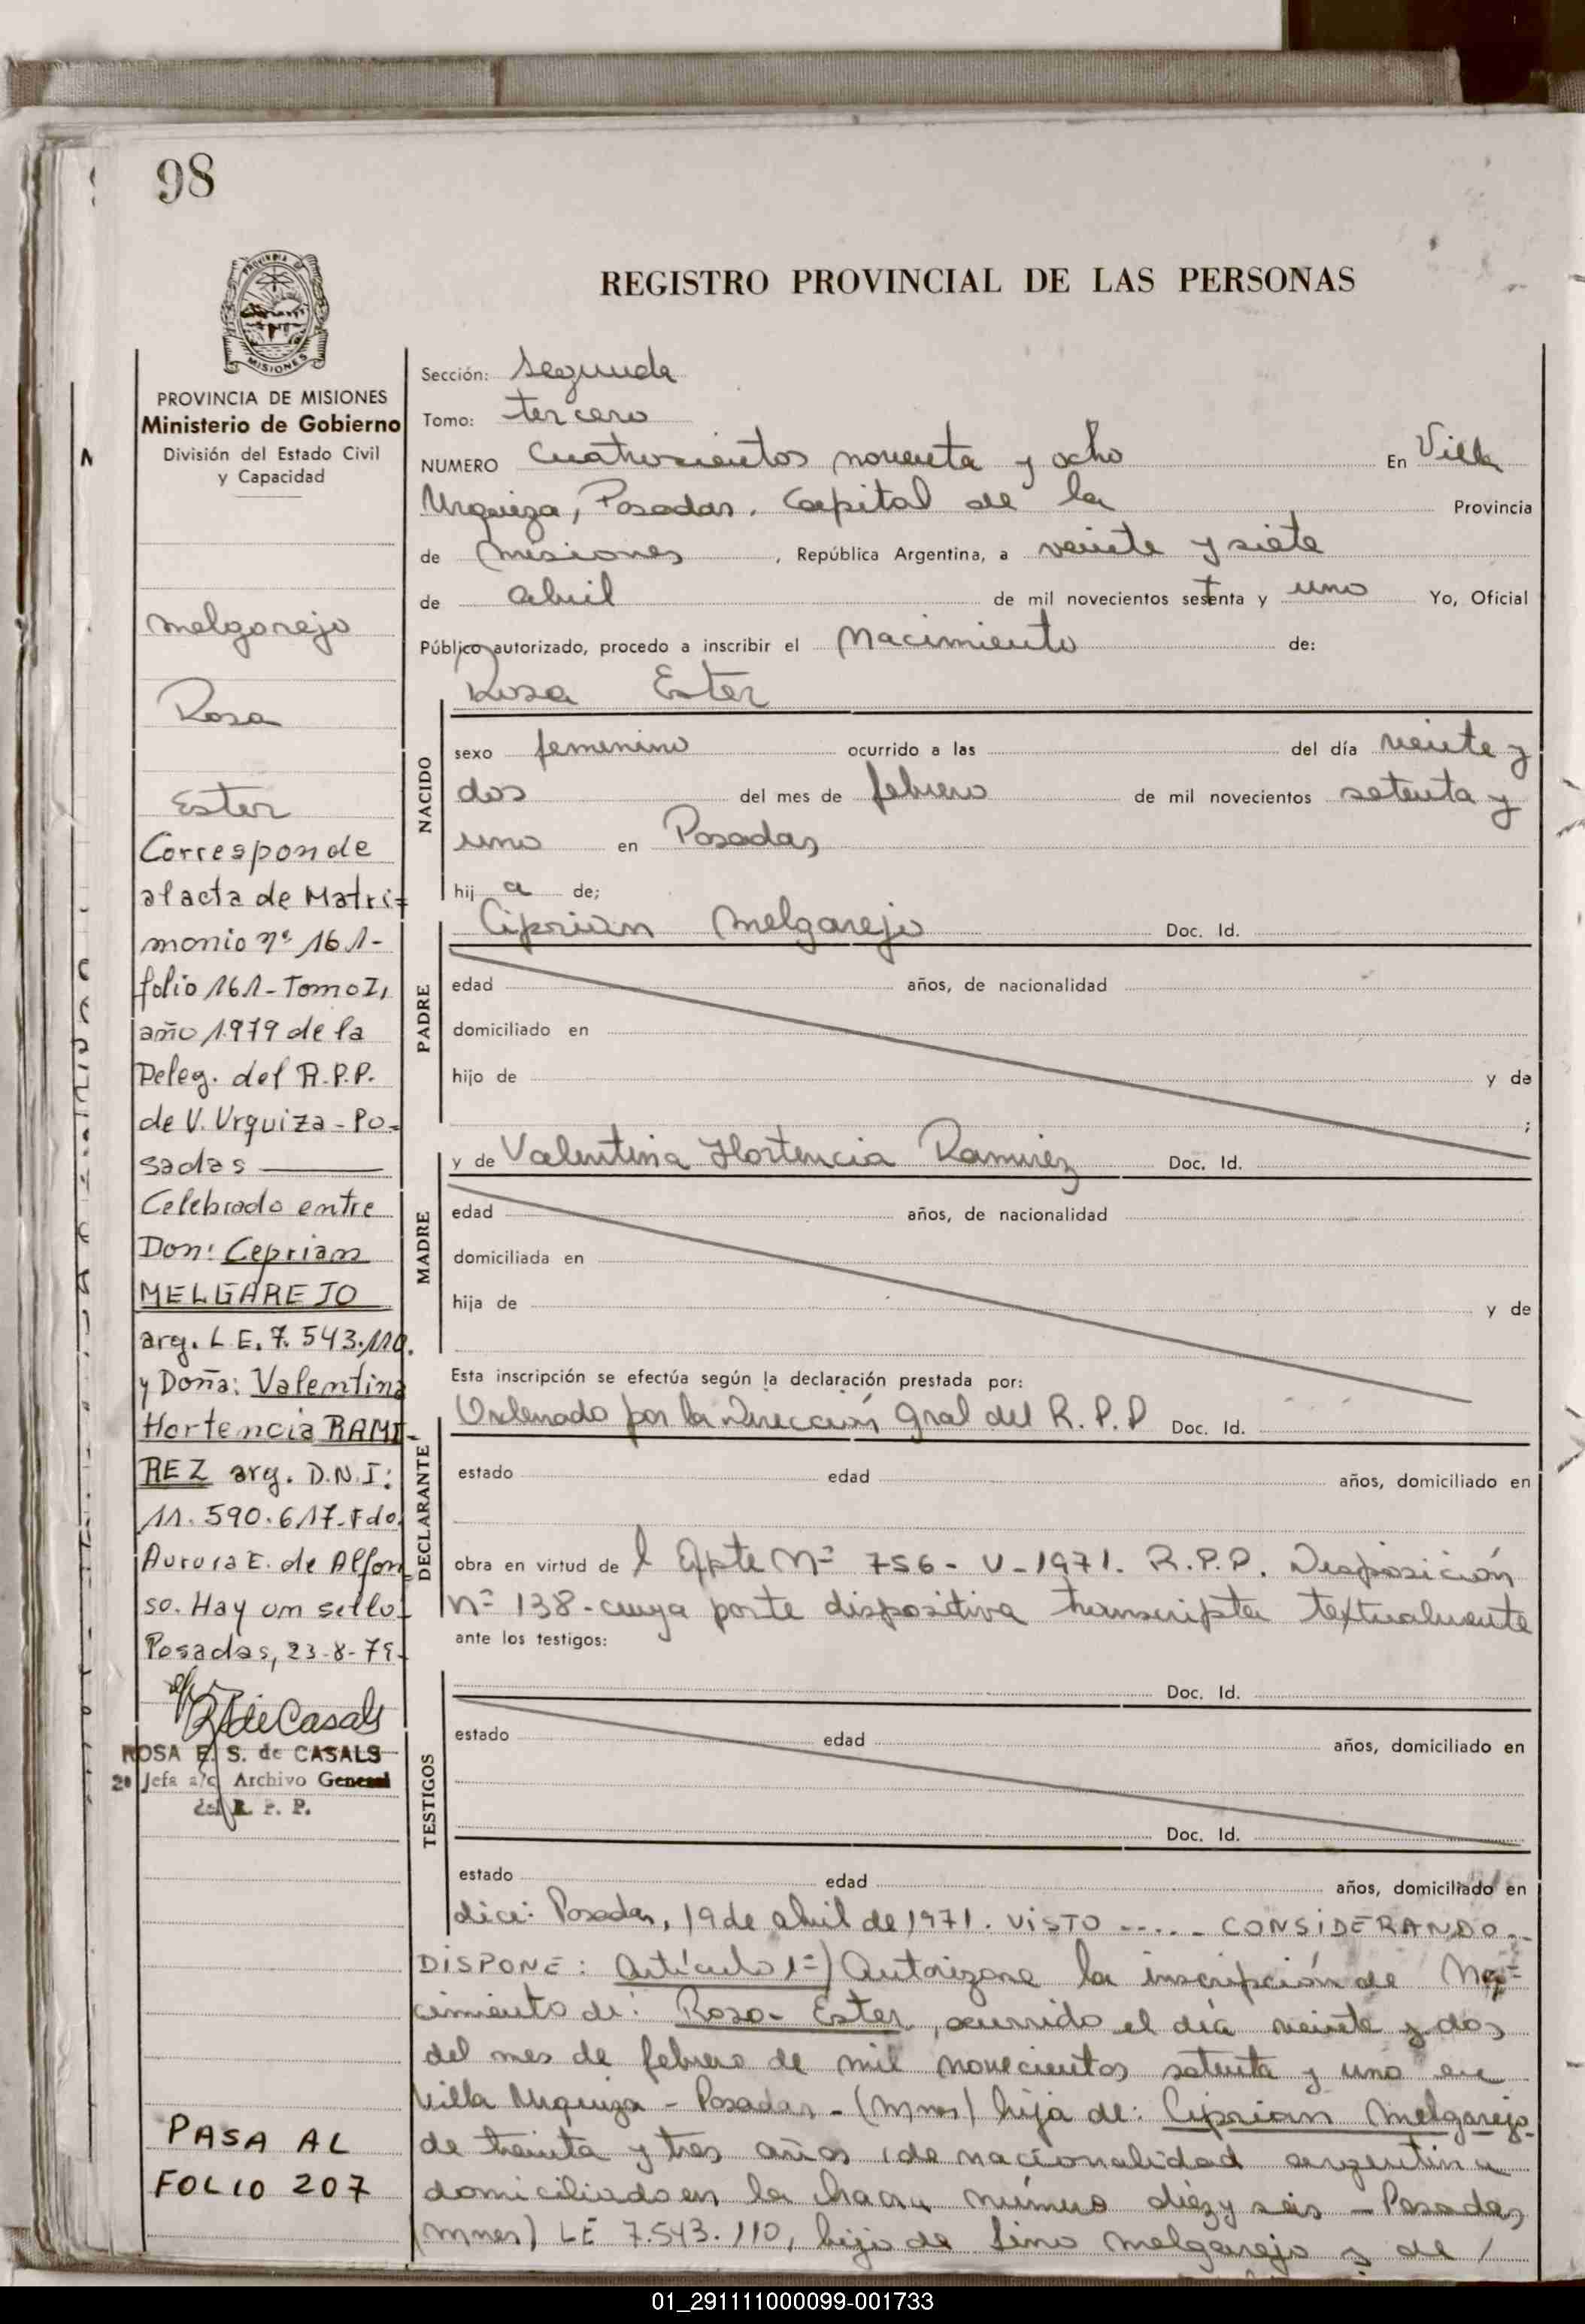 98
REGISTRO PROVINCIAL DE LAS PERSONAS
PROVINCIA DE MISIONES
Ministerio de Gobierno
División del Estado Civil
y Capacidad
melgarejo
Rosa
Ester
Corresponde
al acta de Matri-
monio nº 161-
folio 161-Tomo I,
año 1979 de la
Deleg. del R.P.P.
de V. Urquiza - Po-
sadas
Celebrado entre
Don: Ceprian
MELGAREJO
arg. L.E. 7.543.110.
y Doña: Valentina
Hortencia RAMI-
REZ arg. D.N.I:
11.590.617. Fdo.
Aurora E. de Alfon
so. Hay um sello-
Posadas, 23-8-79-
ROSA E. S. de CASALS
2º Jefa a/c Archivo General
del R. P. P.
PASA AL
FOLIO 207
Sección: Segunda
Tomo: tercero
NUMERO Cuatrocientos noventa y ocho En Villa
Urquiza, Posadas. Capital de la Provincia
de Misiones , República Argentina, a veinte y siete
de abril de mil novecientos setenta y uno Yo, Oficial
Público autorizado, procedo a inscribir el Nacimiento de:
Rosa Ester
NACIDO
sexo femenino ocurrido a las del día veinte y
dos del mes de febrero de mil novecientos setenta y
uno en Posadas
hij a de;
PADRE
Ciprian Melgarejo Doc. Id.
edad años, de nacionalidad
domiciliado en
hijo de y de
;
MADRE
y de Valentina Hortencia Ramirez Doc. Id.
edad años, de nacionalidad
domiciliada en
hija de y de
Esta inscripción se efectúa según la declaración prestada por:
DECLARANTE
Ordenado por la Dirección Gral del R. P. P Doc. Id.
estado edad años, domiciliado en
obra en virtud de l Expte Nº 756- V-1971. R.P.P. Disposición
nº 138-cuya parte dispositiva transcripta textualmente
ante los testigos:
TESTIGOS
Doc. Id.
estado edad años, domiciliado en
Doc. Id.
estado edad años, domiciliado en
dice: Posadas, 19 de abril de 1971. VISTO ..... CONSIDERANDO...
DISPONE: Artículo 1º) Autorizase la inscripción de Na-
cimiento de: Rosa- Ester, ocurrido el día veinte y dos
del mes de febrero de mil novecientos setenta y uno en
Villa Urquiza - Posadas - (Mnes) hija de: Ciprian Melgarejo-
de treinta y tres años, de nacionalidad argentina
domiciliado en la chacra número diez y seis - Posadas
(Mnes) LE 7.543.110, hijo de Melgarejo y de /
01_291111000099-001733